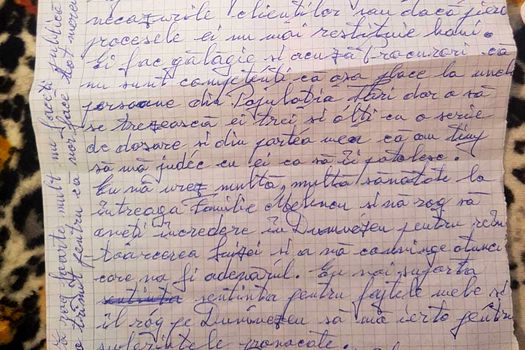 necazurile clientilor sau dacă pierd
procesele ei nu mai restituie banii.
Ei fac gălăgie si acuză procurori ca
nu sunt competenti ca asa face la unele
persoane din Populatia Țării dar o să
se trezească ei trei si alti cu o serie
de dosare si din partea mea ca am timp
să mă judec cu ei ca să îi potolesc.
Eu vă urez multă, multă sănătate la
întreaga Familie si va rog să
aveti incredere în Dumnezeu pentru rein
toarcerea si o vă convinge atunci
care va fi adevarul. Eu voi suporta
sentinta pentru faptele mele si
îl rog pe Dumnezeu să mă ierte pentru
suferintele provocate.
Vă rog foarte mult nu faceti publică
pentru ca vor face tot mereu